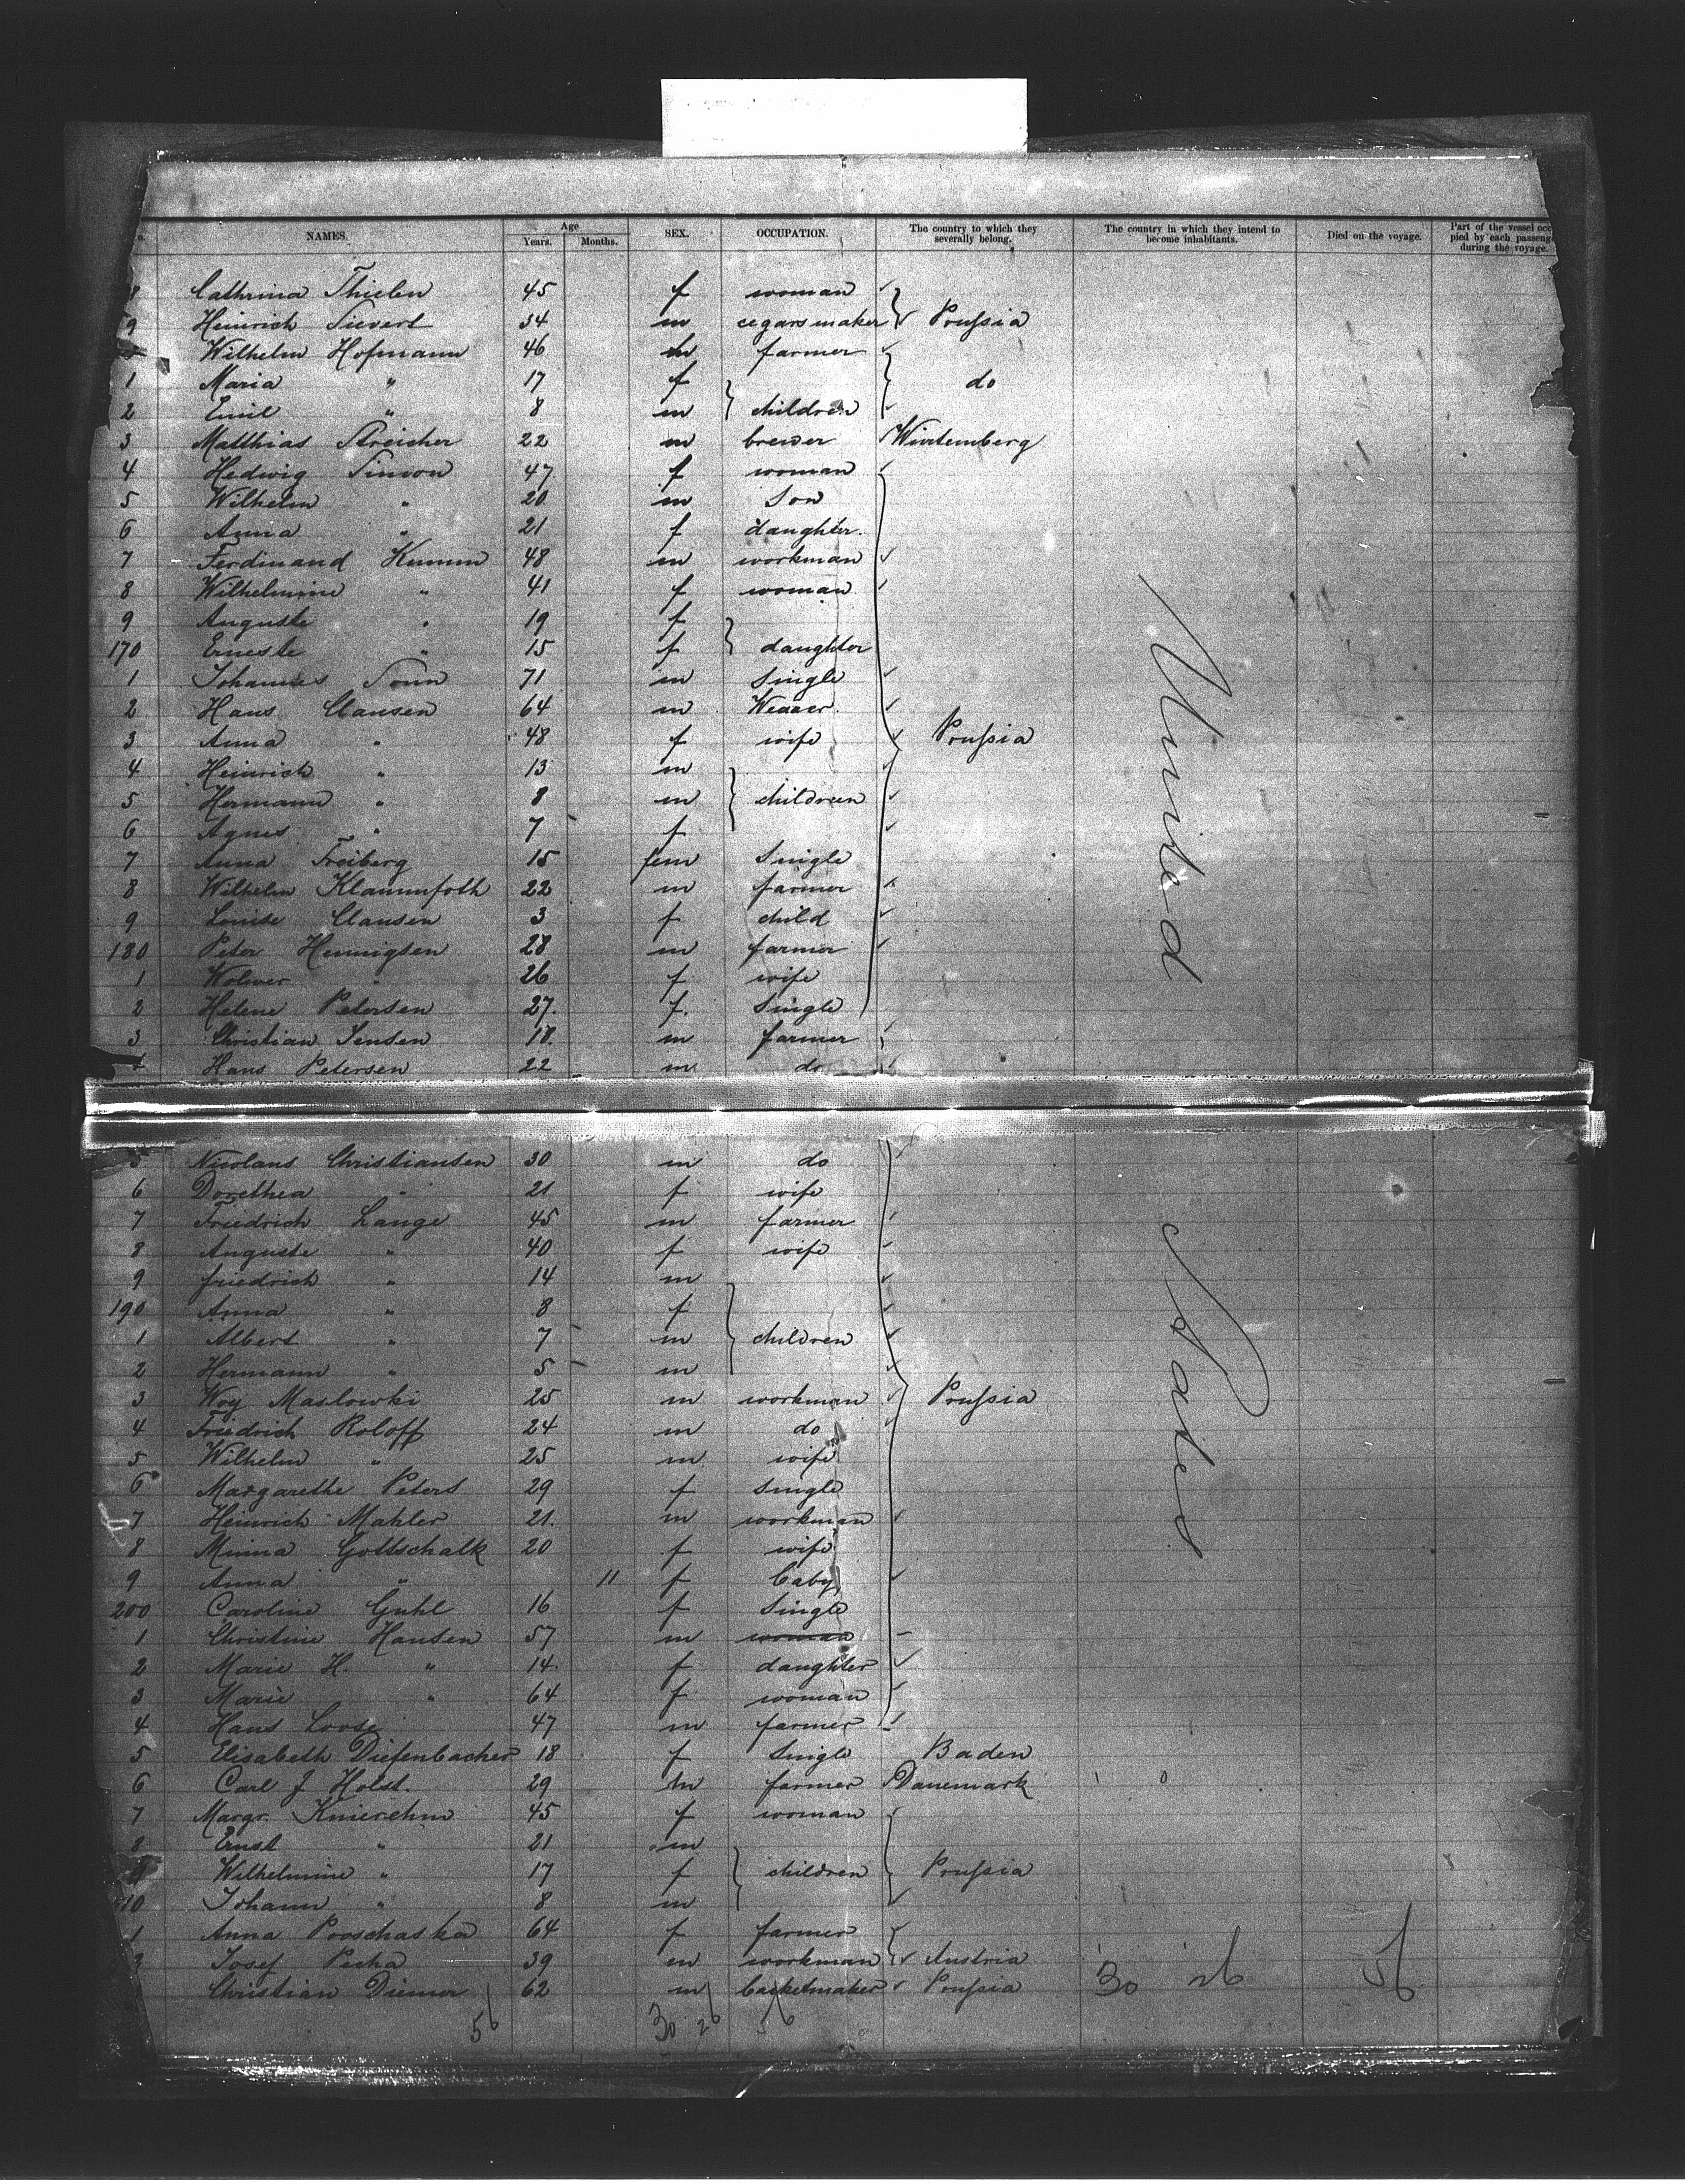 o. NAMES. Age Years. Months. SEX. OCCUPATION. The country to which they severally belong. The country in which they intend to become inhabitants. Died on the voyage. Part of the vessel occ pied by each passeng during the voyage.
8 Cathrina Thielen 45 f woman
9 Heinrich Sievert 34 m cegarsmaker Prussia
Wilhelm Hofmann 46 m farmer
1 Maria " 17 f do
2 Emil " 8 m children
3 Matthias Streicher 22 m brewer Wirtemberg
4 Hedwig Simon 47 f woman
5 Wilhelm " 20 m Son
6 Anna " 21 f daughter
7 Ferdinand Kumm 48 m workman
8 Wilhelmine " 41 f woman
9 Auguste " 19 f
170 Erneste " 15 f daughter
1 Johannes Sonn 71 m Single
2 Hans Clausen 64 m Weaver
3 Anna " 48 f wife Prussia
4 Heinrich " 13 m
5 Hermann " 8 m children
6 Agnes " 7 f
7 Anna Freiberg 15 fem Single
8 Wilhelm Klammfoth 22 m farmer
9 Louise Clausen 3 f child
180 Peter Hennigsen 28 m farmer
1 Wolwer " 26 f wife
2 Helene Petersen 27 f Single
3 Christian Jensen 18 m farmer
4 Hans Petersen 22 m do
United
5 Nicolaus Christiansen 30 m do
6 Dorethea " 21 f wife
7 Friedrich Lange 45 m farmer
8 Auguste " 40 f wife
9 friedrich " 14 m
190 Anna " 8 f
1 Albert " 7 m children
2 Hermann " 5 m
3 Woy Maslowki 25 m workman Prussia
4 Friedrich Roloff 24 m do
5 Wilhelm " 25 m wife
6 Margarethe Peters 29 f Single
7 Heinrich Mahler 21 m workman
8 Minna Gottschalk 20 f wife
9 Anna " 11 f baby
200 Caroline Guhl 16 f Single
1 Christine Hansen 57 m woman
2 Marie H. " 14 f daughter
3 Marie " 64 f woman
4 Hans Loose 47 m farmer
5 Elisabeth Diefenbacher 18 f Single Baden
6 Carl J Holst. 29 m farmer Danemark
7 Margr. Knierehm 45 f woman
8 Ernst " 21 m
Wilhelmine " 17 f children Prussia
10 Johann " 8 m
1 Anna Proschaska 64 f farmer
Josef Pecha 39 m workman Austria
Christian Diemer 62 m basketmaker Prussia 30 26 56
States
56 30 26 56